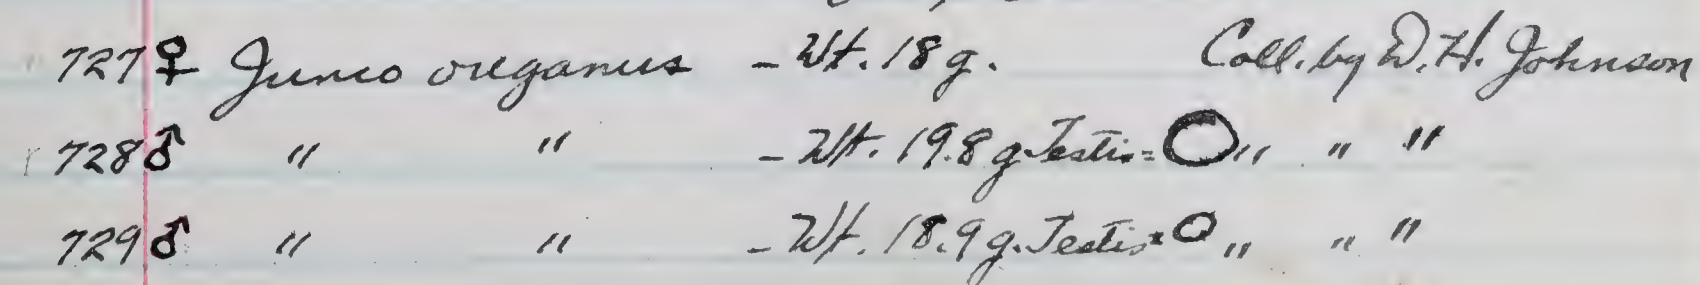 727 ♀ Junco oreganus - Wt. 18 g. Coll. by D. H. Johnson
728 ♂ " " - Wt. 19.8 g Testis = O " " "
729 ♂ " " - Wt. 18.9 g. Testis = O " " "